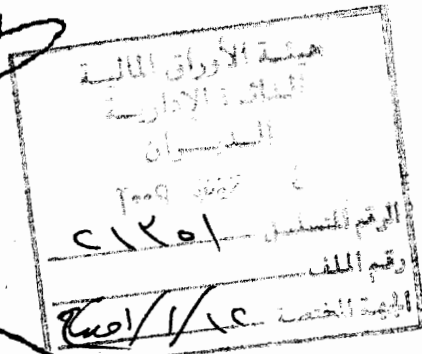 هيئة الأوراق المالية
الدائرة الإدارية
الديوان
٢٠٠٩
الرقم المتسلسل ٢١٣٥١
رقم الملف
الجهة المختصة ١٢/١/